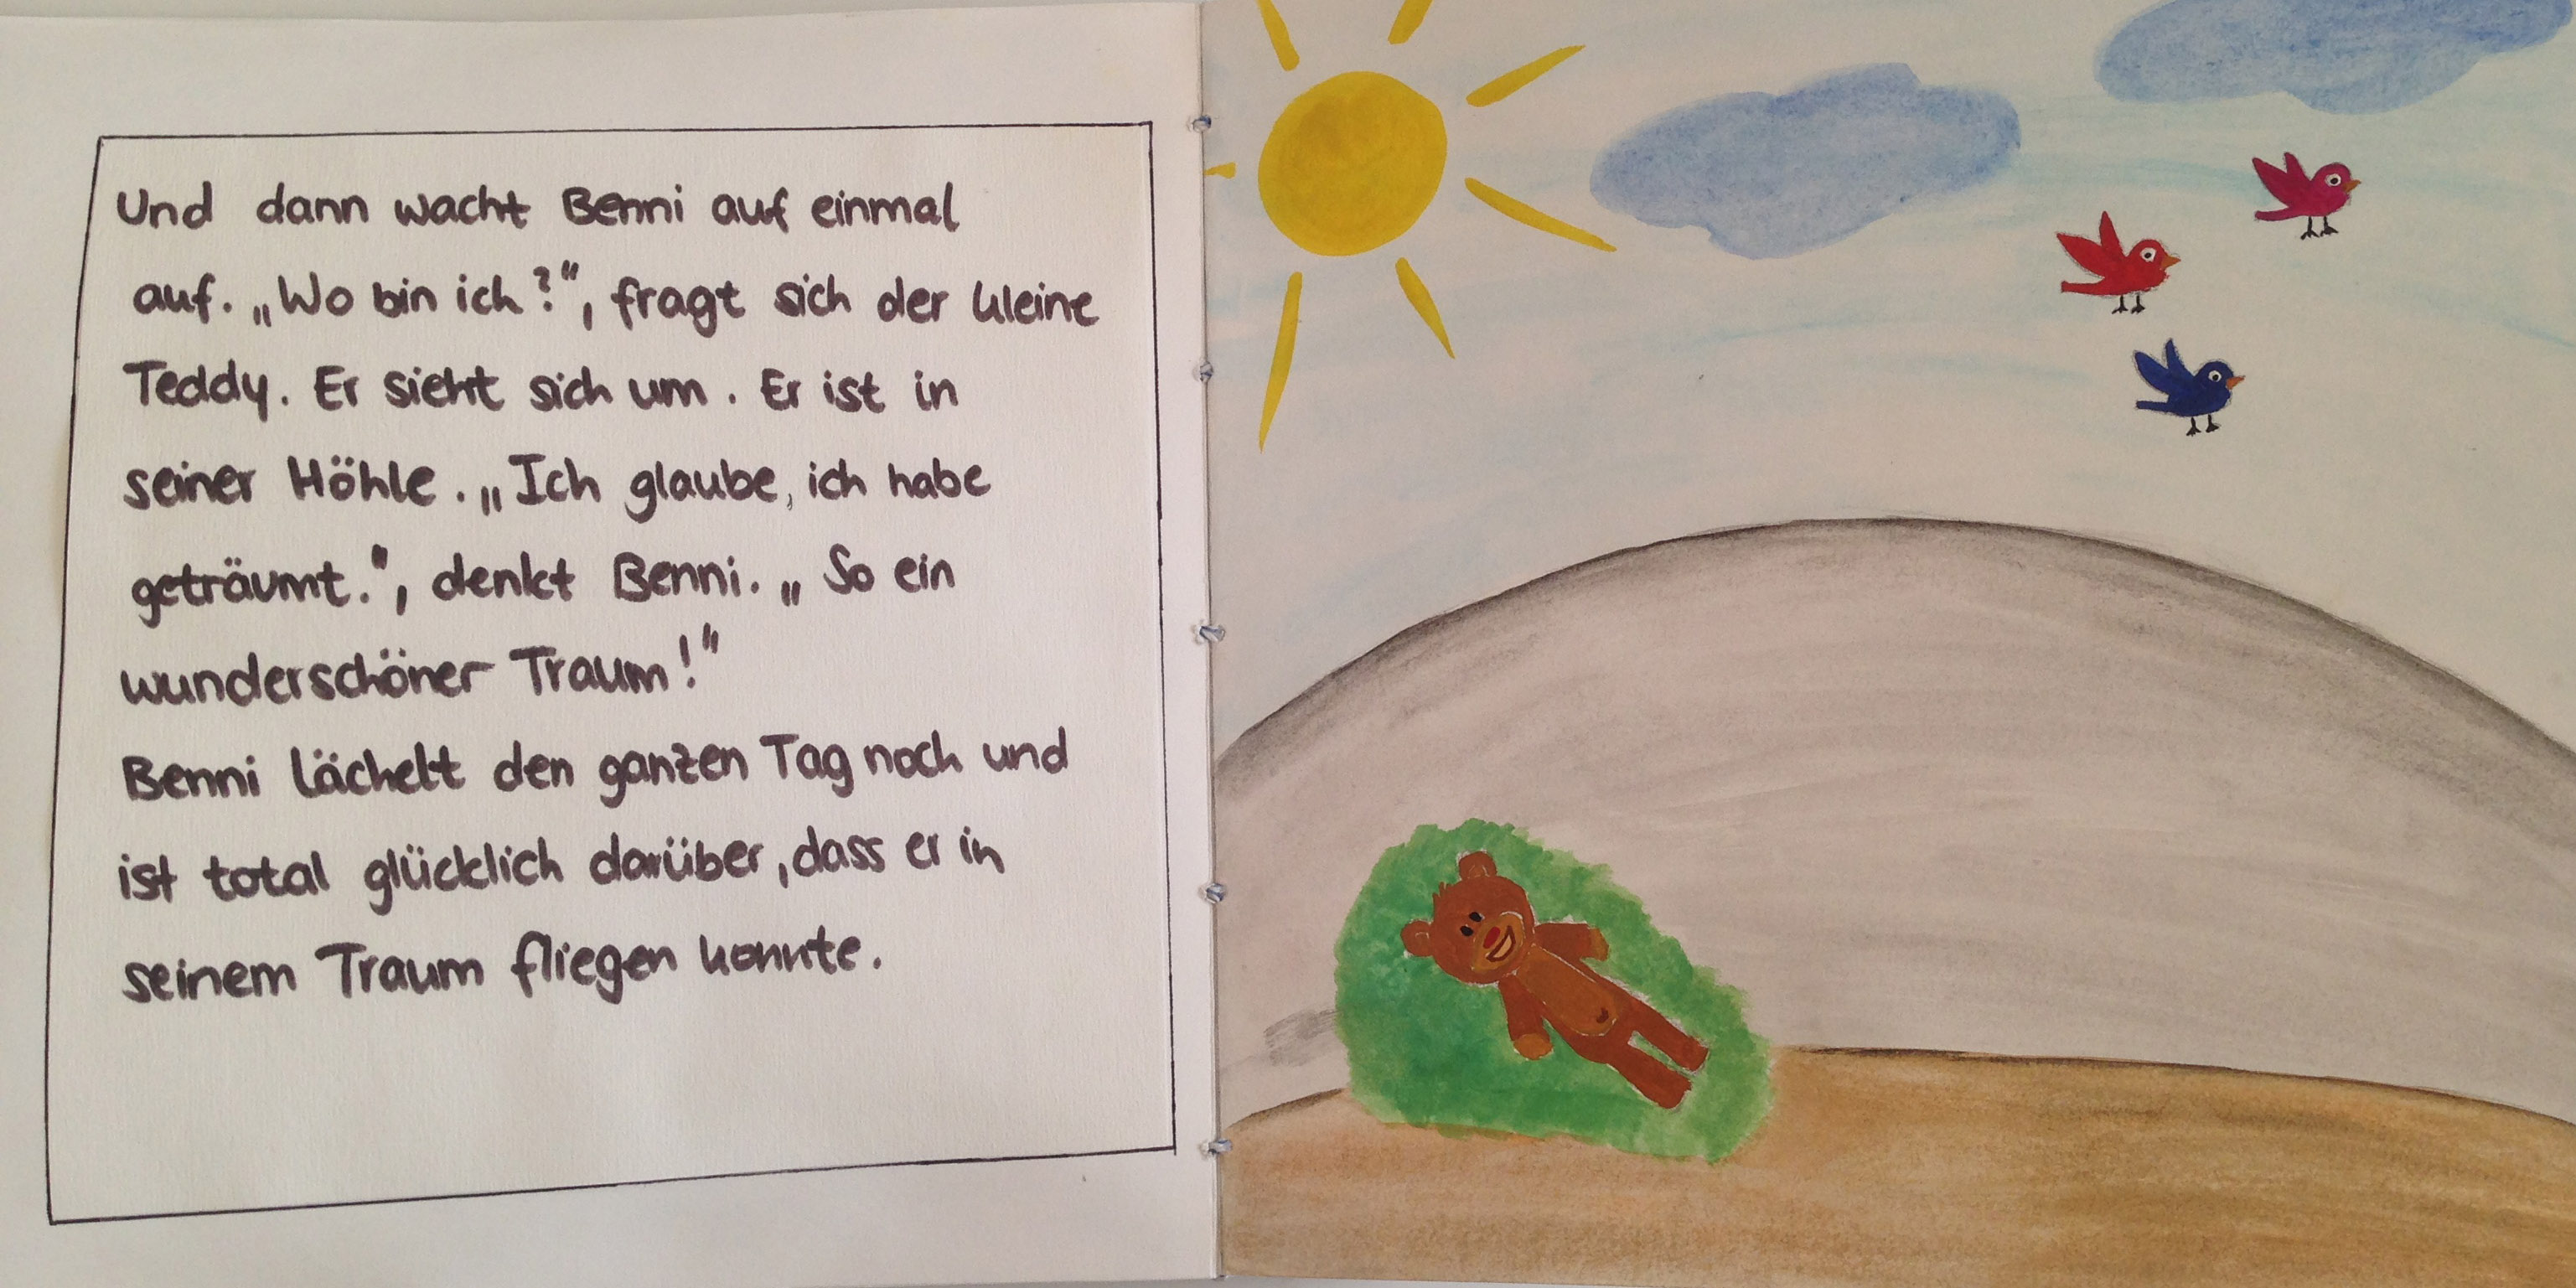 Und dann wacht Benni auf einmal
auf. „Wo bin ich?", fragt sich der kleine
Teddy. Er sieht sich um. Er ist in
seiner Höhle. „Ich glaube, ich habe
geträumt.", denkt Benni. „So ein
wunderschöner Traum!"
Benni lächelt den ganzen Tag noch und
ist total glücklich darüber, dass er in
seinem Traum fliegen konnte.